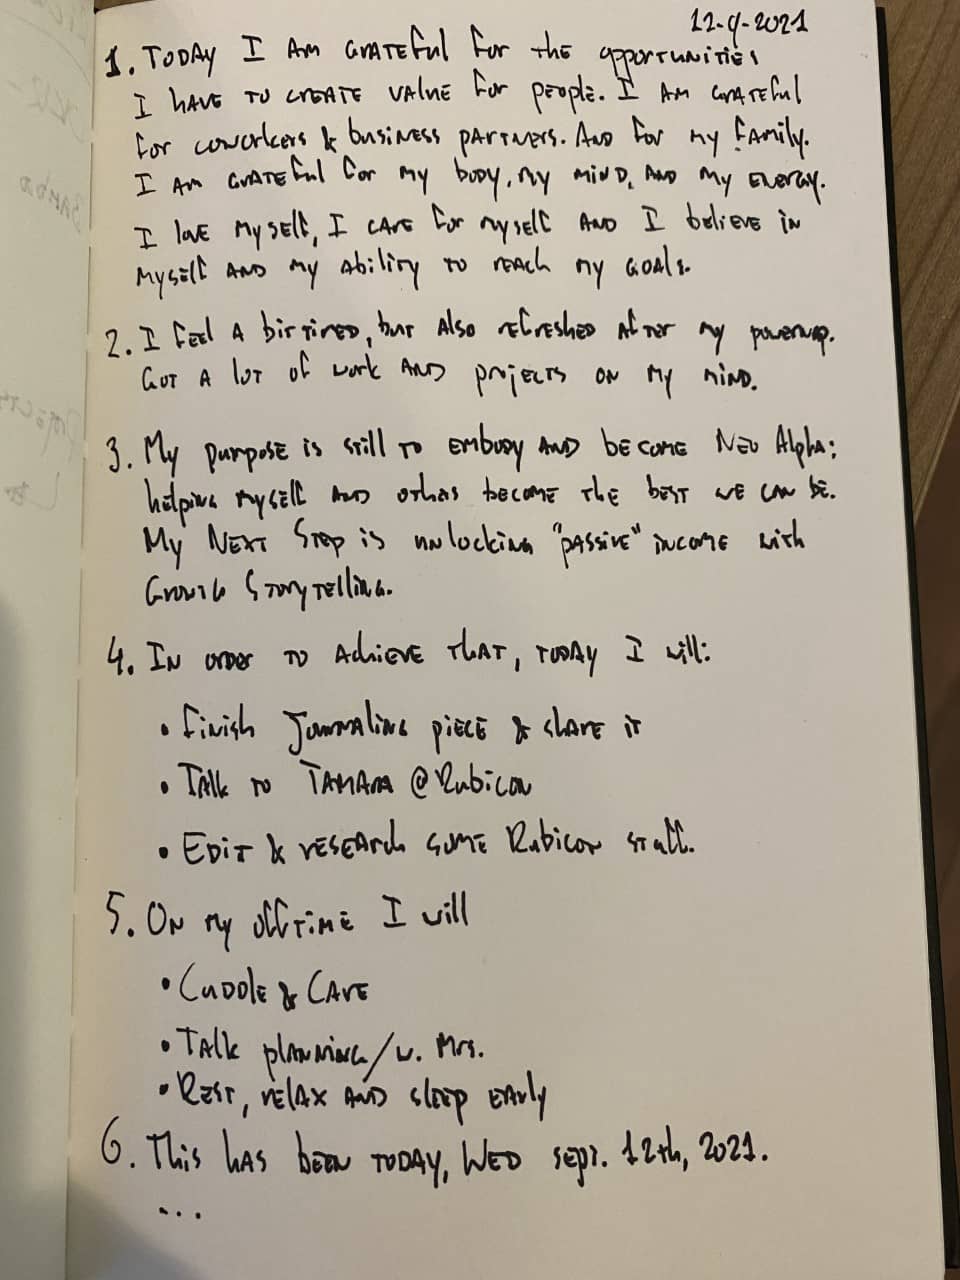 12-9-2021
1. TODAY I AM GRATEful for the opportunities
I HAVE TO CREATE VALUE for PEOPLE. I AM GRATEful
for COWORKERS & business PARTNERS. AND for my family.
I AM GRATEful for my body, my MIND, AND my ENERGY.
I love myself, I CARE for myself AND I believe in
myself AND my Ability TO REACH my GOALS.
2. I feel A bit TIRED, but Also REFRESHED AFTER my powerup.
GOT A lot of work AND projects ON my MIND.
3. My purpose is still TO EMBODY AND BECOME NEO Alpha:
helping myself AND others become THE BEST WE CAN BE.
My NEXT STEP is unlocking "PASSIVE" INCOME with
Growth STORYTElling.
4. IN order TO AchiEVE THAT, TODAY I will:
• Finish Journaling piece & share it
• TAlk TO TAMARA @Rubicon
• EDIT & RESEARCh SOME Rubicon stuff.
5. ON my offtime I will
• CuDDle & CARE
• TAlk plANNING/w. Mrs.
• REST, relax AND sleep EARly
6. This HAS BEEN TODAY, WED sept. 12th, 2021.
...